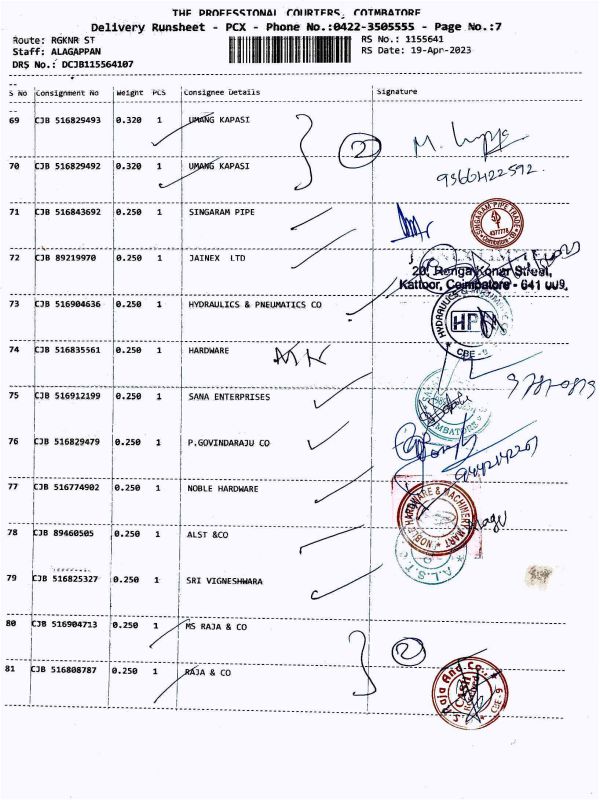 THE PROFESSIONAL COURIERS, COIMBATORE
Delivery Runsheet - PCX - Phone No.:0422-3505555 - Page No.:7
Route: RGKNR ST RS No.: 1155641
Staff: ALAGAPPAN RS Date: 19-Apr-2023
DRS No.: DCJB115564107
S No Consignment No Weight PCS Consignee Details Signature
69 CJB 516829493 0.320 1 UMANG KAPASI
2
70 CJB 516829492 0.320 1 UMANG KAPASI
9566422592
71 CJB 516843692 0.250 1 SINGARAM PIPE
SINGARAM PIPE TRADERS
72 CJB 89219970 0.250 1 JAINEX LTD
20, Renga Konar Street,
Kattoor, Coimbatore - 641 009.
73 CJB 516904636 0.250 1 HYDRAULICS & PNEUMATICS CO
HYDRAULICS &
HP
CBE - 9
74 CJB 516835561 0.250 1 HARDWARE
75 CJB 516912199 0.250 1 SANA ENTERPRISES
76 CJB 516829479 0.250 1 P.GOVINDARAJU CO
77 CJB 516774902 0.250 1 NOBLE HARDWARE
NOBLE HARDWARE & MACHINERY MART
78 CJB 89460505 0.250 1 ALST &CO
A.L.S.T.
79 CJB 516825327 0.250 1 SRI VIGNESHWARA
80 CJB 516904713 0.250 1 MS RAJA & CO
2
81 CJB 516808787 0.250 1 RAJA & CO
Raja And Co.,
CBE - 9